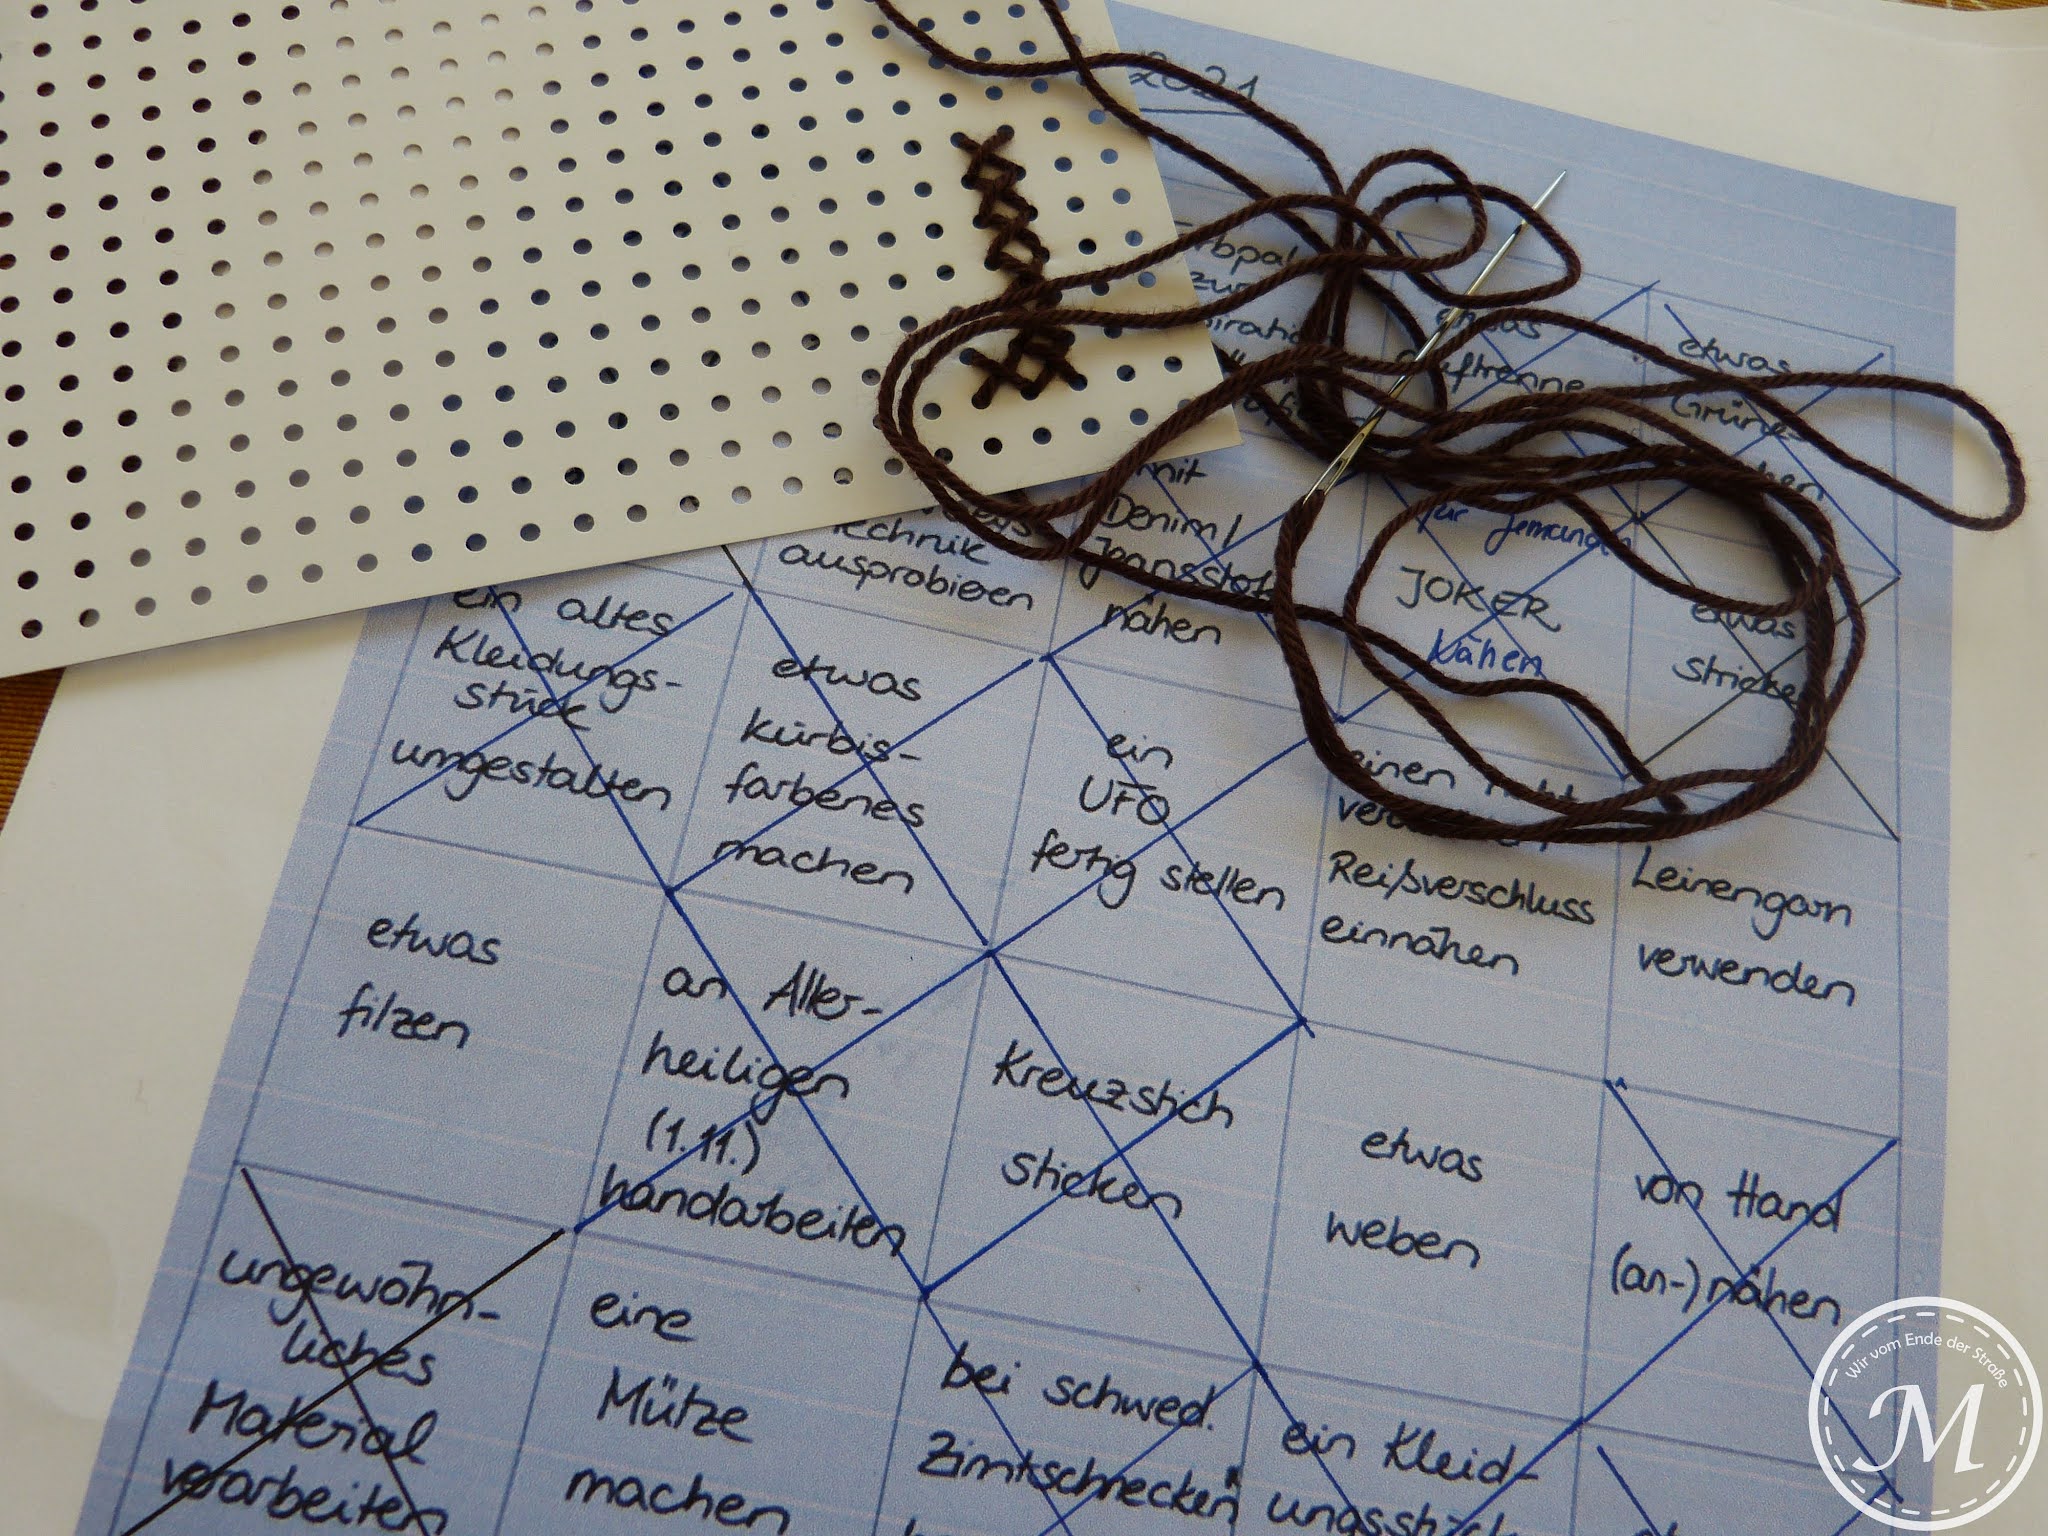 2021
etwas
etwas
Grünes
mit
Denim/
Jeansstoff
nähen
Technik
ausprobieren
für jemanden
JOKER
Nähen
etwas
stricken
ein altes
Kleidungs-
stück
umgestalten
etwas
kürbis-
farbenes
machen
ein
UFO
fertig stellen
einen
Reißverschluss
einnähen
Leinengarn
verwenden
etwas
filzen
an Aller-
heiligen
(1.11.)
handarbeiten
Kreuzstich
sticken
etwas
weben
von Hand
(an-)nähen
ungewöhn-
liches
Material
verarbeiten
eine
Mütze
machen
bei schwed.
Zimtschnecken
ein Kleid-
ungsstück
Wir vom Ende der Straße
M